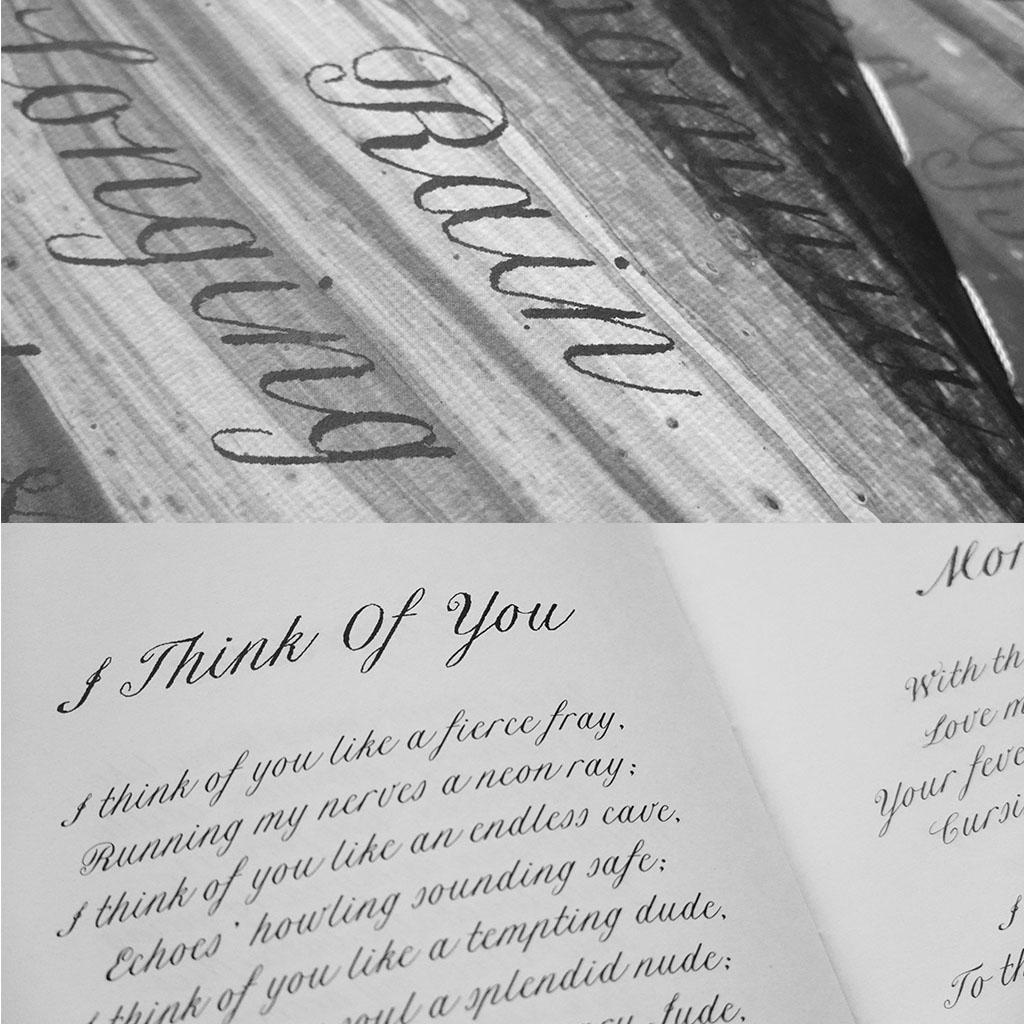 Longing
Rain
I Think Of You
I think of you like a fierce fray,
Running my nerves a neon ray;
I think of you like an endless cave,
Echoes' howling sounding safe;
I think of you like a tempting dude,
soul a splendid nude;
Jude,
With th
Love m
Your feve
Cursi
I
To th